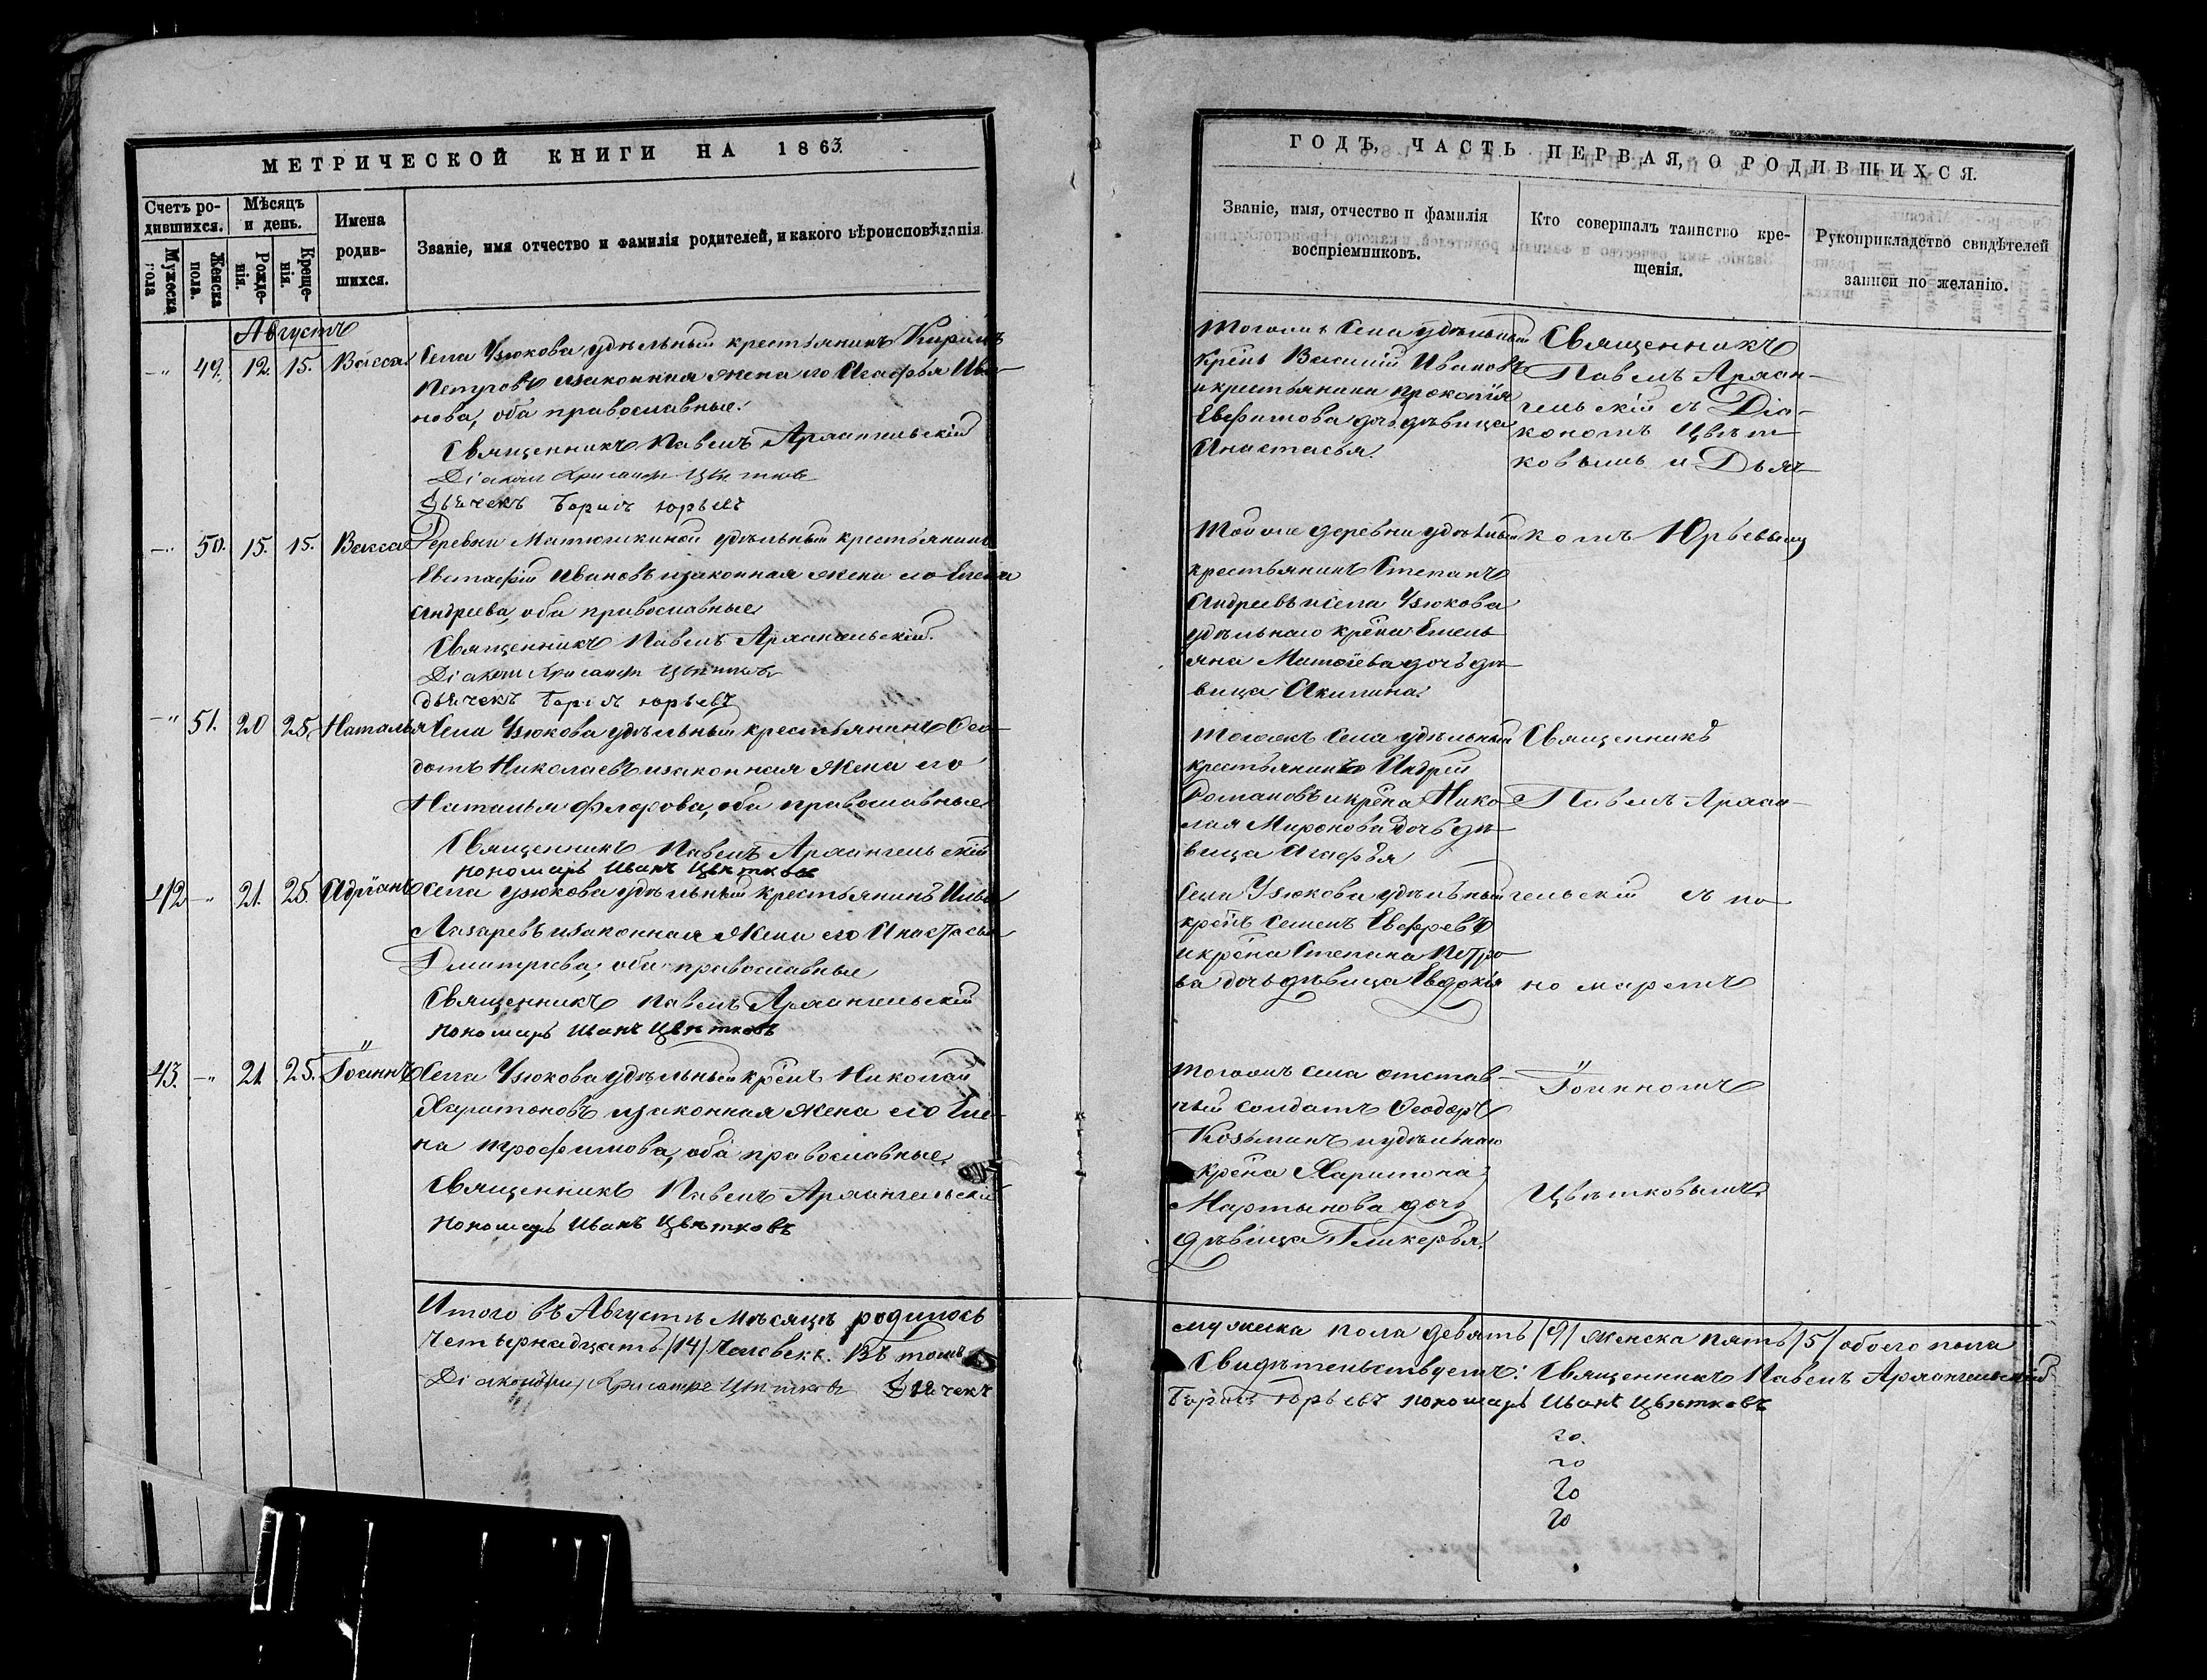 МЕТРИЧЕСКОЙ КНИГИ НА 1863.
Счетъ ро-
дившихся.
Мѣсяцъ
и день.
Имена
родив-
шихся.
Званіе, имя отчество и фамилія родителей, и какого вѣроисповѣданія.
Мужеска
пола
Женска
пола.
Рожде-
нія.
Креще-
нія.
Августъ
49. 12. 15. Васса
Села Узюкова удѣльный крестьянинъ Кирилъ
Петровъ и законная жена его Агафья Ива-
нова, оба православные.
Священникъ Павелъ Архангельскій
Діаконъ Хрисанфъ Цвѣтковъ
Дьячекъ Борисъ Юрьевъ
50. 15. 15. Васса
Деревни Матюшкиной удѣльный крестьянинъ
Евстафій Ивановъ и законная жена его Елена
Андреева, оба православные
Священникъ Павелъ Архангельскій.
Діаконъ Хрисанфъ Цвѣтковъ
дьячекъ Борисъ Юрьевъ
51. 20 25. Наталья
Села Узюкова удѣльный крестьянинъ Ѳео-
дотъ Николаевъ и законная жена его
Наталья Флорова, оба православные
Священникъ Павелъ Архангельскій
пономарь Иванъ Цвѣтковъ
42 21. 25. Адріанъ
Села Узюкова удѣльный крестьянинъ Илья
Лазаревъ и законная жена его Анастасья
Дмитріева, оба православные
Священникъ Павелъ Архангельскій
пономарь Иванъ Цвѣтковъ
43. 21. 25. Іоаннъ
Села Узюкова удѣльный крѣнъ Николай
Харитоновъ и законная жена его Еле-
на Трофимова, оба православные.
Священникъ Павелъ Архангельскій
пономарь Иванъ Цвѣтковъ
Итого въ Августѣ мѣсяцѣ родилось
четырнадцать /14/ человекъ. Въ томъ
Діаконъ Хрисанфъ Цвѣтковъ Дьячекъ
ГОДЪ, ЧАСТЬ ПЕРВАЯ, О РОДИВШИХСЯ.
Званіе, имя, отчество и фамилія
воспріемниковъ.
Кто совершалъ таинство кре-
щенія.
Рукоприкладство свидѣтелей
записи по желанію.
Тогожъ Села удѣльный
крѣнъ Василій Ивановъ
и крестьянина Прокопія
Евфимова дочь дѣвица
Анастасья.
Священникъ
Павелъ Архан-
гельскій съ Діа-
кономъ Цвѣт-
ковымъ и Дьяч-
Той же деревни удѣльный
крестьянинъ Степанъ
Андреевъ и Села Узюкова
удѣльнаго крѣна Емель
яна Матѳеева дочь дѣ-
вица Акилина.
комъ Юрьевымъ
Тогожъ Села удѣльный
крестьянинъ Андрей
Романовъ и крѣна Нико-
лая Миронова дочь дѣ-
вица Агафья
Священникъ
Павелъ Архан-
Села Узюкова удѣльный
крѣнъ Семенъ Евсѳревъ
и крѣна Степана Петро
ва дочь дѣвица Евдокія
гельскій съ по-
номаремъ
Тогожъ села отстав-
ный солдатъ Ѳеодоръ
Козьминъ и удѣльнаго
крѣна Харитона
Мартынова дочь
дѣвица Гликерья.
Іоанномъ
Цвѣтковымъ.
мужеска пола девять /9/ женска пять /5/ обоего пола
Свидѣтельствуетъ: Священникъ Павелъ Архангельскій
Борисъ Юрьевъ пономарь Иванъ Цвѣтковъ